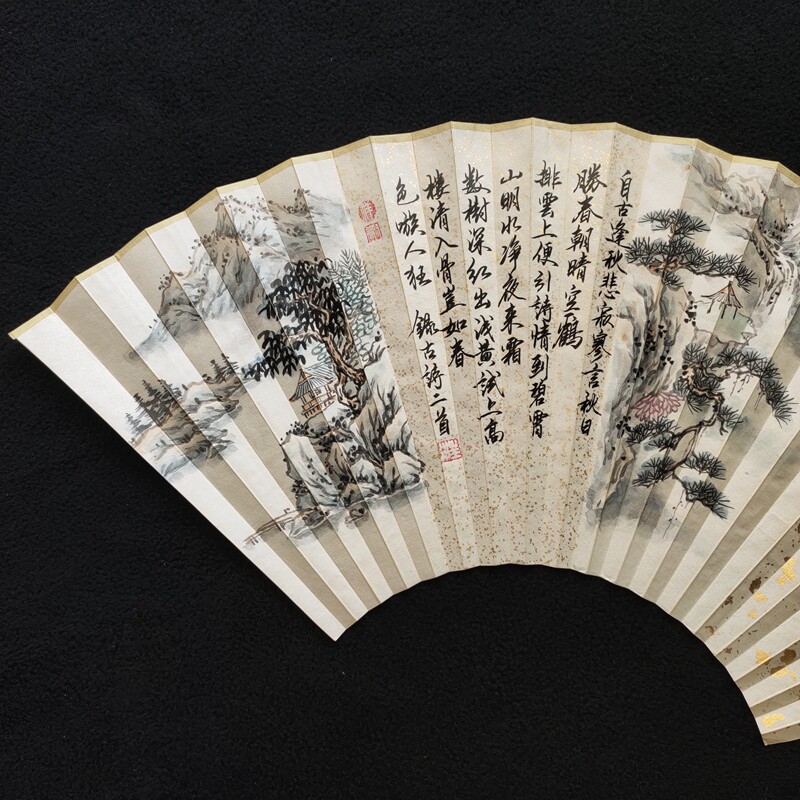 自古逢秋悲寂寥言秋日
勝春朝晴空一鶴
排雲上便引詩情到碧霄
山明水净夜来霜
数樹深紅出浅黃試上高
樓清入骨豈如春
色嗾人狂 錄古詩二首